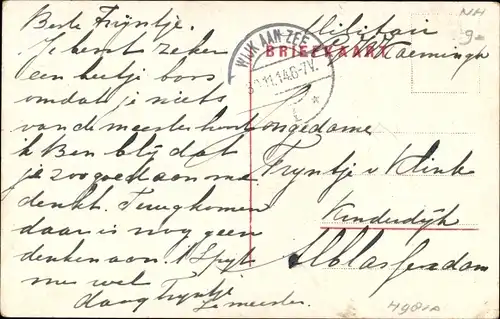 Beste Trijntje.
Je bent zeker
een beetje boos
omdat je niets
van de meester hoort
Ik Ben blij dat
je zoo goed aan me
denkt. Terugkomen
daar is nog geen
denken aan. 't Spijt
me wel
daag Trijntje
de meester.
Militair
WIJK AAN ZEE
BRIEFKAART
.11.14.6-7V.
Jongedame
Trijntje v Klink
Kinderdijk
Alblasserdam
NH
9-